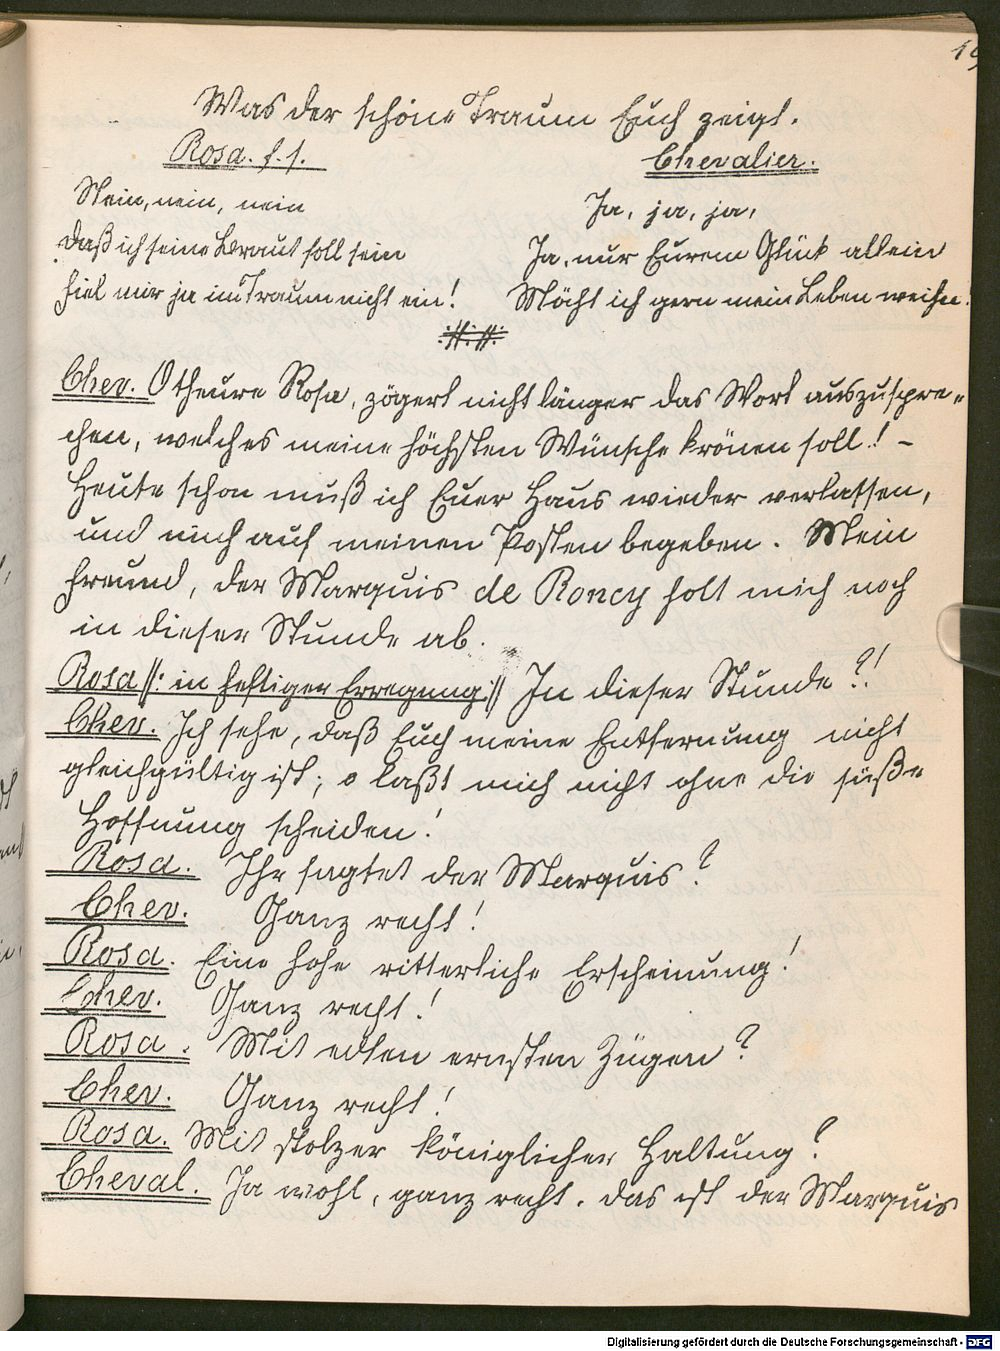 19
Was der schöne Traum Euch zeigt.
Rosa. f. s.
Chevalier.
Nein, nein, nein
Ja, ja, ja,
daß ich seine Braut soll sein
Ja, nur Eurem Glück allein
fiel mir ja im Traum nicht ein!
Möcht ich gern mein Leben weihn.
Chev. O theure Rosa, zögert nicht länger das Wort auszuspre-
chen, welches meine höchsten Wünsche krönen soll! –
Heute schon muß ich Euer Haus wieder verlassen,
und mich auf meinen Posten begeben. Mein
Freund, der Marquis de Roncy holt mich noch
in dieser Stunde ab.
Rosa /: in heftiger Erregung :/ In dieser Stunde?!
Chev. Ich sehe, daß Euch meine Entfernung nicht
gleichgültig ist; o laßt mich nicht ohne die süße
Hoffnung scheiden!
Rosa. Ihr sagtet der Marquis?
Chev. Ganz recht!
Rosa. Eine hohe ritterliche Erscheinung!
Chev. Ganz recht!
Rosa. Mit edlen ernsten Zügen?
Chev. Ganz recht!
Rosa. Mit stolzer königlicher Haltung?
Cheval. Ja wohl, ganz recht. das ist der Marquis
Digitalisierung gefördert durch die Deutsche Forschungsgemeinschaft - DFG